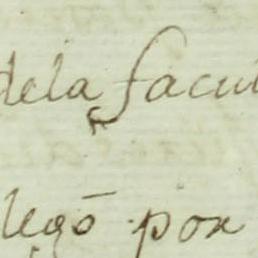 dela facul
legó por